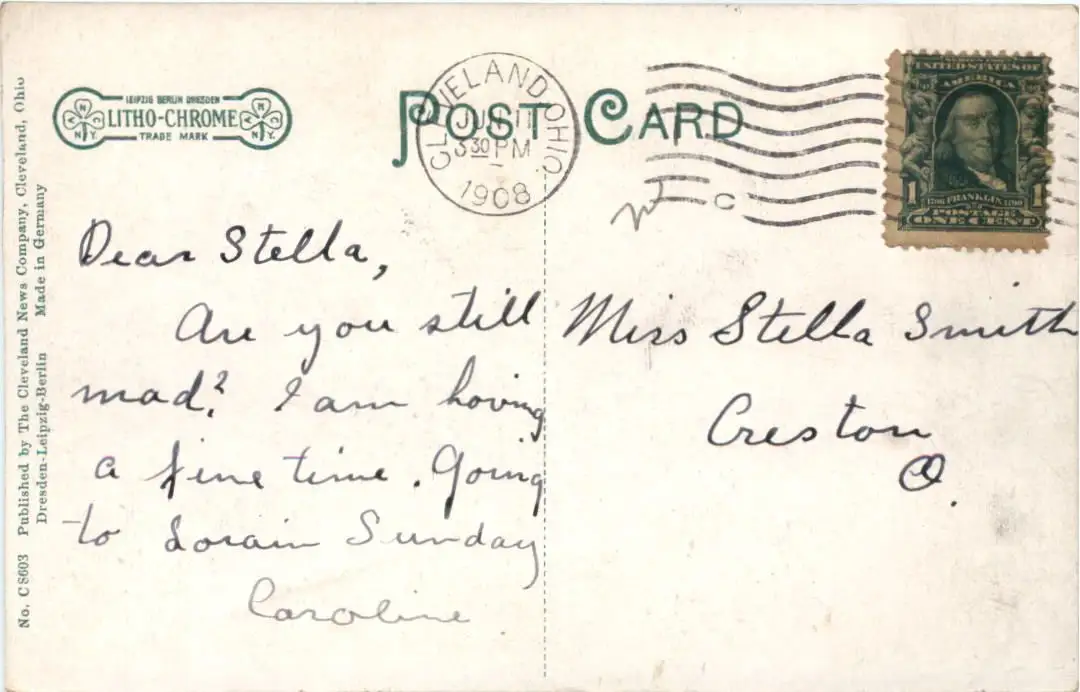 LEIPZIG BERLIN DRESDEN
LITHO-CHROME
TRADE MARK
N
A C
N.Y.
N
A C
N.Y.
POST CARD
CLEVELAND, OHIO.
JUN 11
3 30 PM
1908
C
UNITED STATES OF
AMERICA
1 1
1706 FRANKLIN 1790
POSTAGE
ONE CENT
Dear Stella,
Are you still
mad? I am having
a fine time. Going
to Lorain Sunday
Caroline
Miss Stella Smith
Creston
O.
No. CS603 Published by The Cleveland News Company, Cleveland, Ohio
Dresden-Leipzig-Berlin Made in Germany